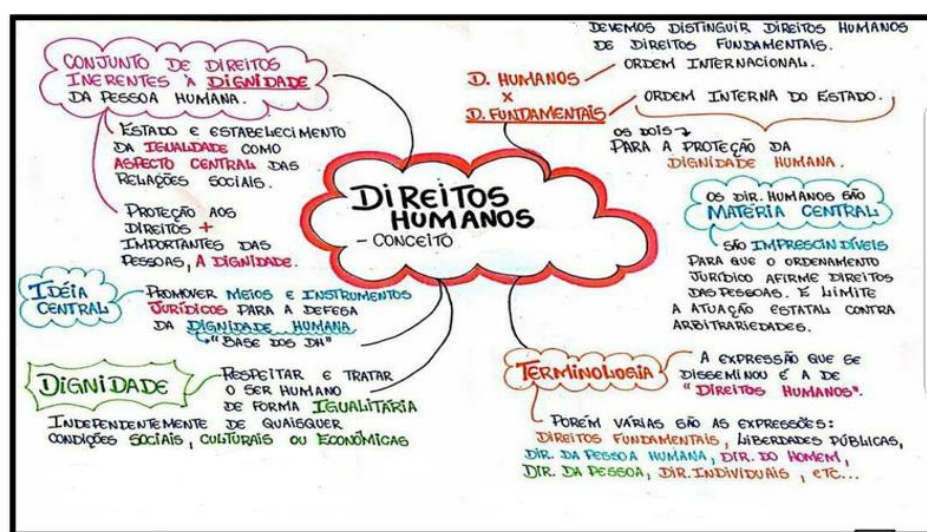 CONJUNTO DE DIREITOS
INERENTES À DIGNIDADE
DA PESSOA HUMANA.
ESTADO E ESTABELECIMENTO
DA IGUALDADE COMO
ASPECTO CENTRAL DAS
RELAÇÕES SOCIAIS.
PROTEÇÃO AOS
DIREITOS +
IMPORTANTES DAS
PESSOAS, A DIGNIDADE.
IDÉIA
CENTRAL
PROMOVER MEIOS E INSTRUMENTOS
JURÍDICOS PARA A DEFESA
DA DIGNIDADE HUMANA
"BASE DOS DH"
DIGNIDADE
RESPEITAR E TRATAR
O SER HUMANO
DE FORMA IGUALITÁRIA
INDEPENDENTEMENTE DE QUAISQUER
CONDIÇÕES SOCIAIS, CULTURAIS OU ECONÔMICAS
DIREITOS
HUMANOS
- CONCEITO
DEVEMOS DISTINGUIR DIREITOS HUMANOS
DE DIREITOS FUNDAMENTAIS.
D. HUMANOS
X
D. FUNDAMENTAIS
ORDEM INTERNACIONAL.
ORDEM INTERNA DO ESTADO.
OS DOIS
PARA A PROTEÇÃO DA
DIGNIDADE HUMANA.
OS DIR. HUMANOS SÃO
MATÉRIA CENTRAL
SÃO IMPRESCINDÍVEIS
PARA QUE O ORDENAMENTO
JURÍDICO AFIRME DIREITOS
DAS PESSOAS. E LIMITE
A ATUAÇÃO ESTATAL CONTRA
ARBITRARIEDADES.
TERMINOLOGIA
A EXPRESSÃO QUE SE
DISSEMINOU É A DE
"DIREITOS HUMANOS".
PORÉM VÁRIAS SÃO AS EXPRESSÕES:
DIREITOS FUNDAMENTAIS, LIBERDADES PÚBLICAS,
DIR. DA PESSOA HUMANA, DIR. DO HOMEM,
DIR. DA PESSOA, DIR. INDIVIDUAIS, ETC...